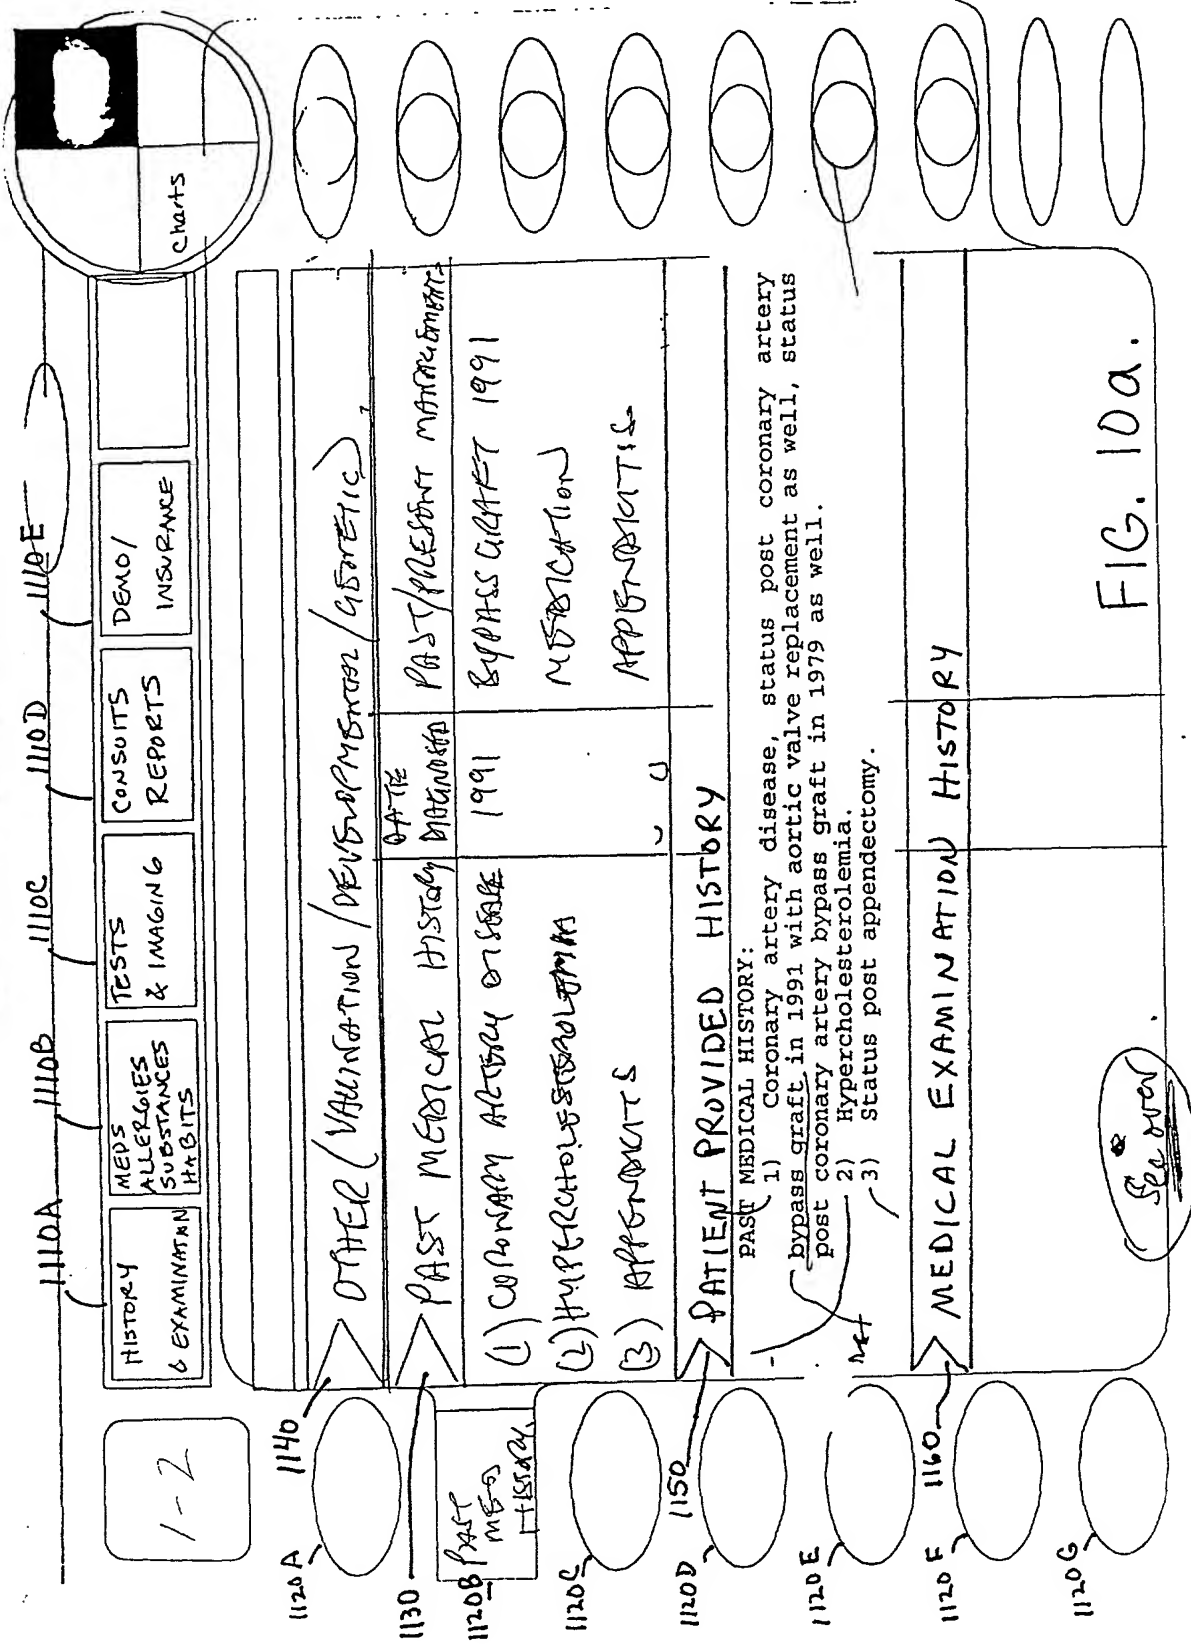 1110A
1110B
1110C
1110D
1110E
1-2
HISTORY
& EXAMINATION
MEDS
ALLERGIES
SUBSTANCES
HABITS
TESTS
& IMAGING
CONSULTS
REPORTS
DEMO/
INSURANCE
Charts
1120A
1140
OTHER (VACCINATION / DEVELOPMENTAL / GENETIC)
1130
PAST MEDICAL HISTORY
DATE
DIAGNOSED
PAST/PRESENT MANAGEMENT
1120B
PAST
MED
HISTORY
(1) CORONARY ARTERY DISEASE
1991
BYPASS GRAFT 1991
(2) HYPERCHOLESTEROLEMIA
MEDICATION
1120C
(3) APPENDICITS
APPENDICITIS
1150
PATIENT PROVIDED HISTORY
1120D
PAST MEDICAL HISTORY:
1) Coronary artery disease, status post coronary artery
bypass graft in 1991 with aortic valve replacement as well, status
post coronary artery bypass graft in 1979 as well.
2) Hypercholesterolemia.
3) Status post appendectomy.
1120E
1160
MEDICAL EXAMINATION HISTORY
1120F
1120G
See over
FIG. 10a.